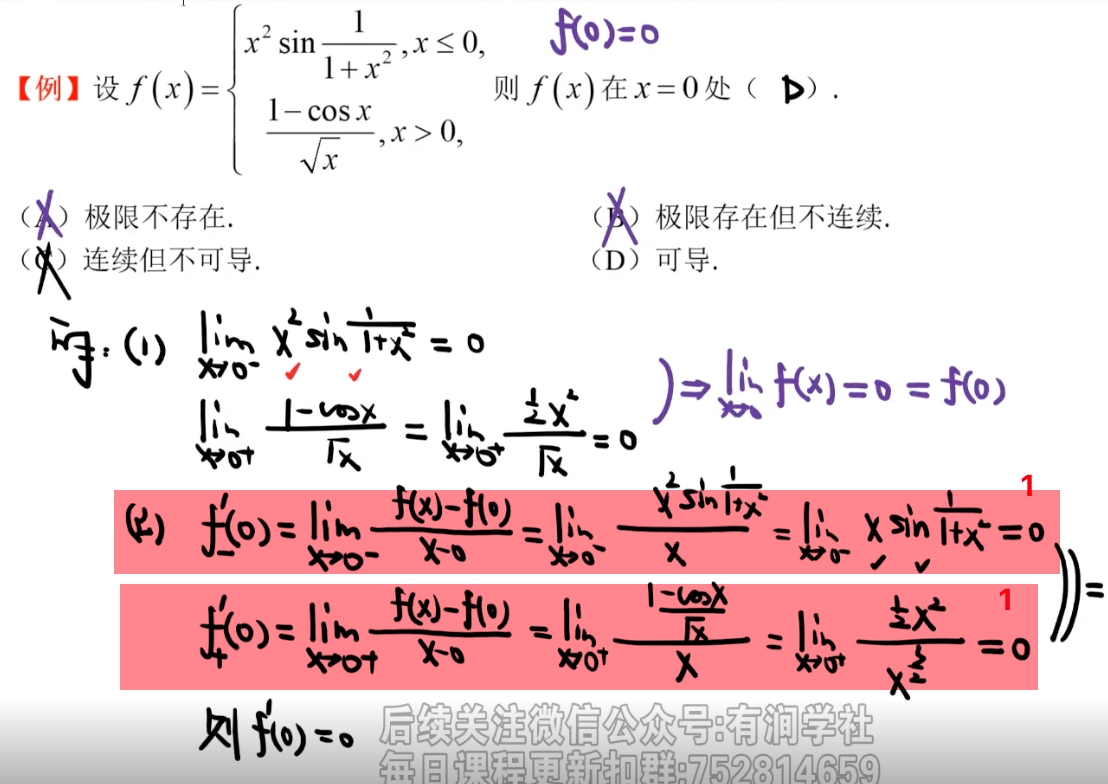 【例】设 f(x) = { x² sin 1/(1+x²), x ≤ 0, (1−cos x)/√x, x > 0, 则 f(x) 在 x = 0 处（ D ）.
f(0)=0
（A）极限不存在.
（B）极限存在但不连续.
（C）连续但不可导.
（D）可导.
(1) lim x→0⁻ x² sin 1/(1+x²) = 0
lim x→0⁺ (1−cosx)/√x = lim x→0⁺ (½x²)/√x = 0
) ⇒ lim x→0 f(x) = 0 = f(0)
(2) f'₋(0) = lim x→0⁻ (f(x)−f(0))/(x−0) = lim x→0⁻ (x² sin 1/(1+x²))/x = lim x→0⁻ x sin 1/(1+x²) = 0
1
f'₊(0) = lim x→0+ (f(x)−f(0))/(x−0) = lim x→0⁺ ((1−cosx)/√x)/x = lim x→0⁺ (½x²)/x^(3/2) = 0
1
) ) =
则 f'(0) = 0
后续关注微信公众号:有润学社
每日课程更新扣群:752814659